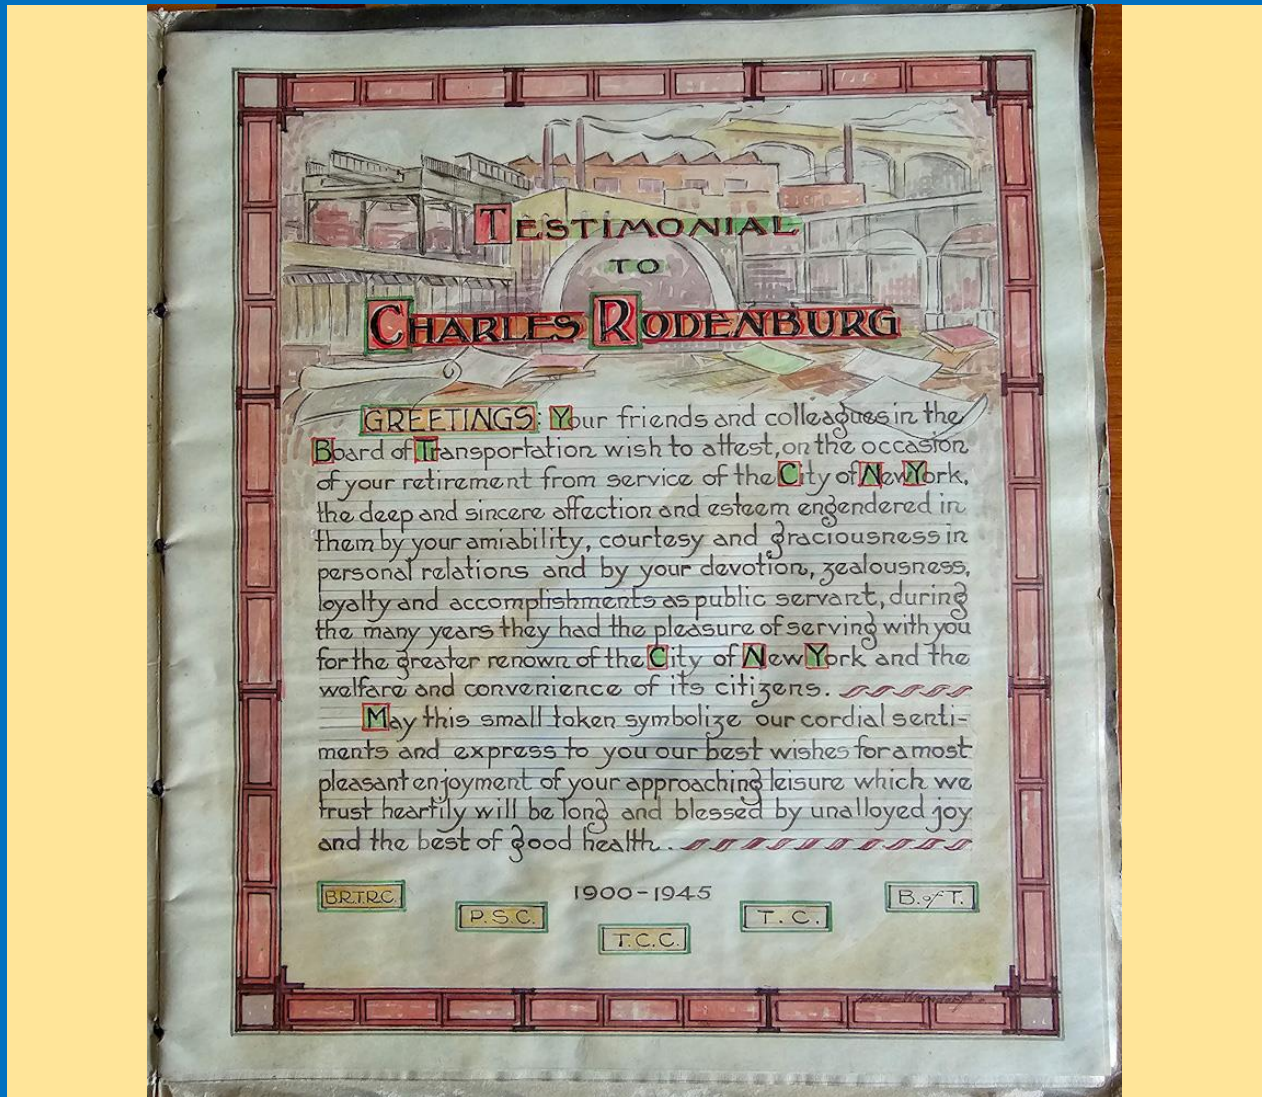 TESTIMONIAL
TO
CHARLES RODENBURG
GREETINGS: Your friends and colleagues in the
Board of Transportation wish to attest, on the occasion
of your retirement from service of the City of New York,
the deep and sincere affection and esteem engendered in
them by your amiability, courtesy and graciousness in
personal relations and by your devotion, zealousness,
loyalty and accomplishments as public servant, during
the many years they had the pleasure of serving with you
for the greater renown of the City of New York and the
welfare and convenience of its citizens.
May this small token symbolize our cordial senti-
ments and express to you our best wishes for a most
pleasant enjoyment of your approaching leisure which we
trust heartily will be long and blessed by unalloyed joy
and the best of good health.
1900-1945
B.R.T.R.C.
P.S.C.
T.C.C.
T.C.
B. of T.